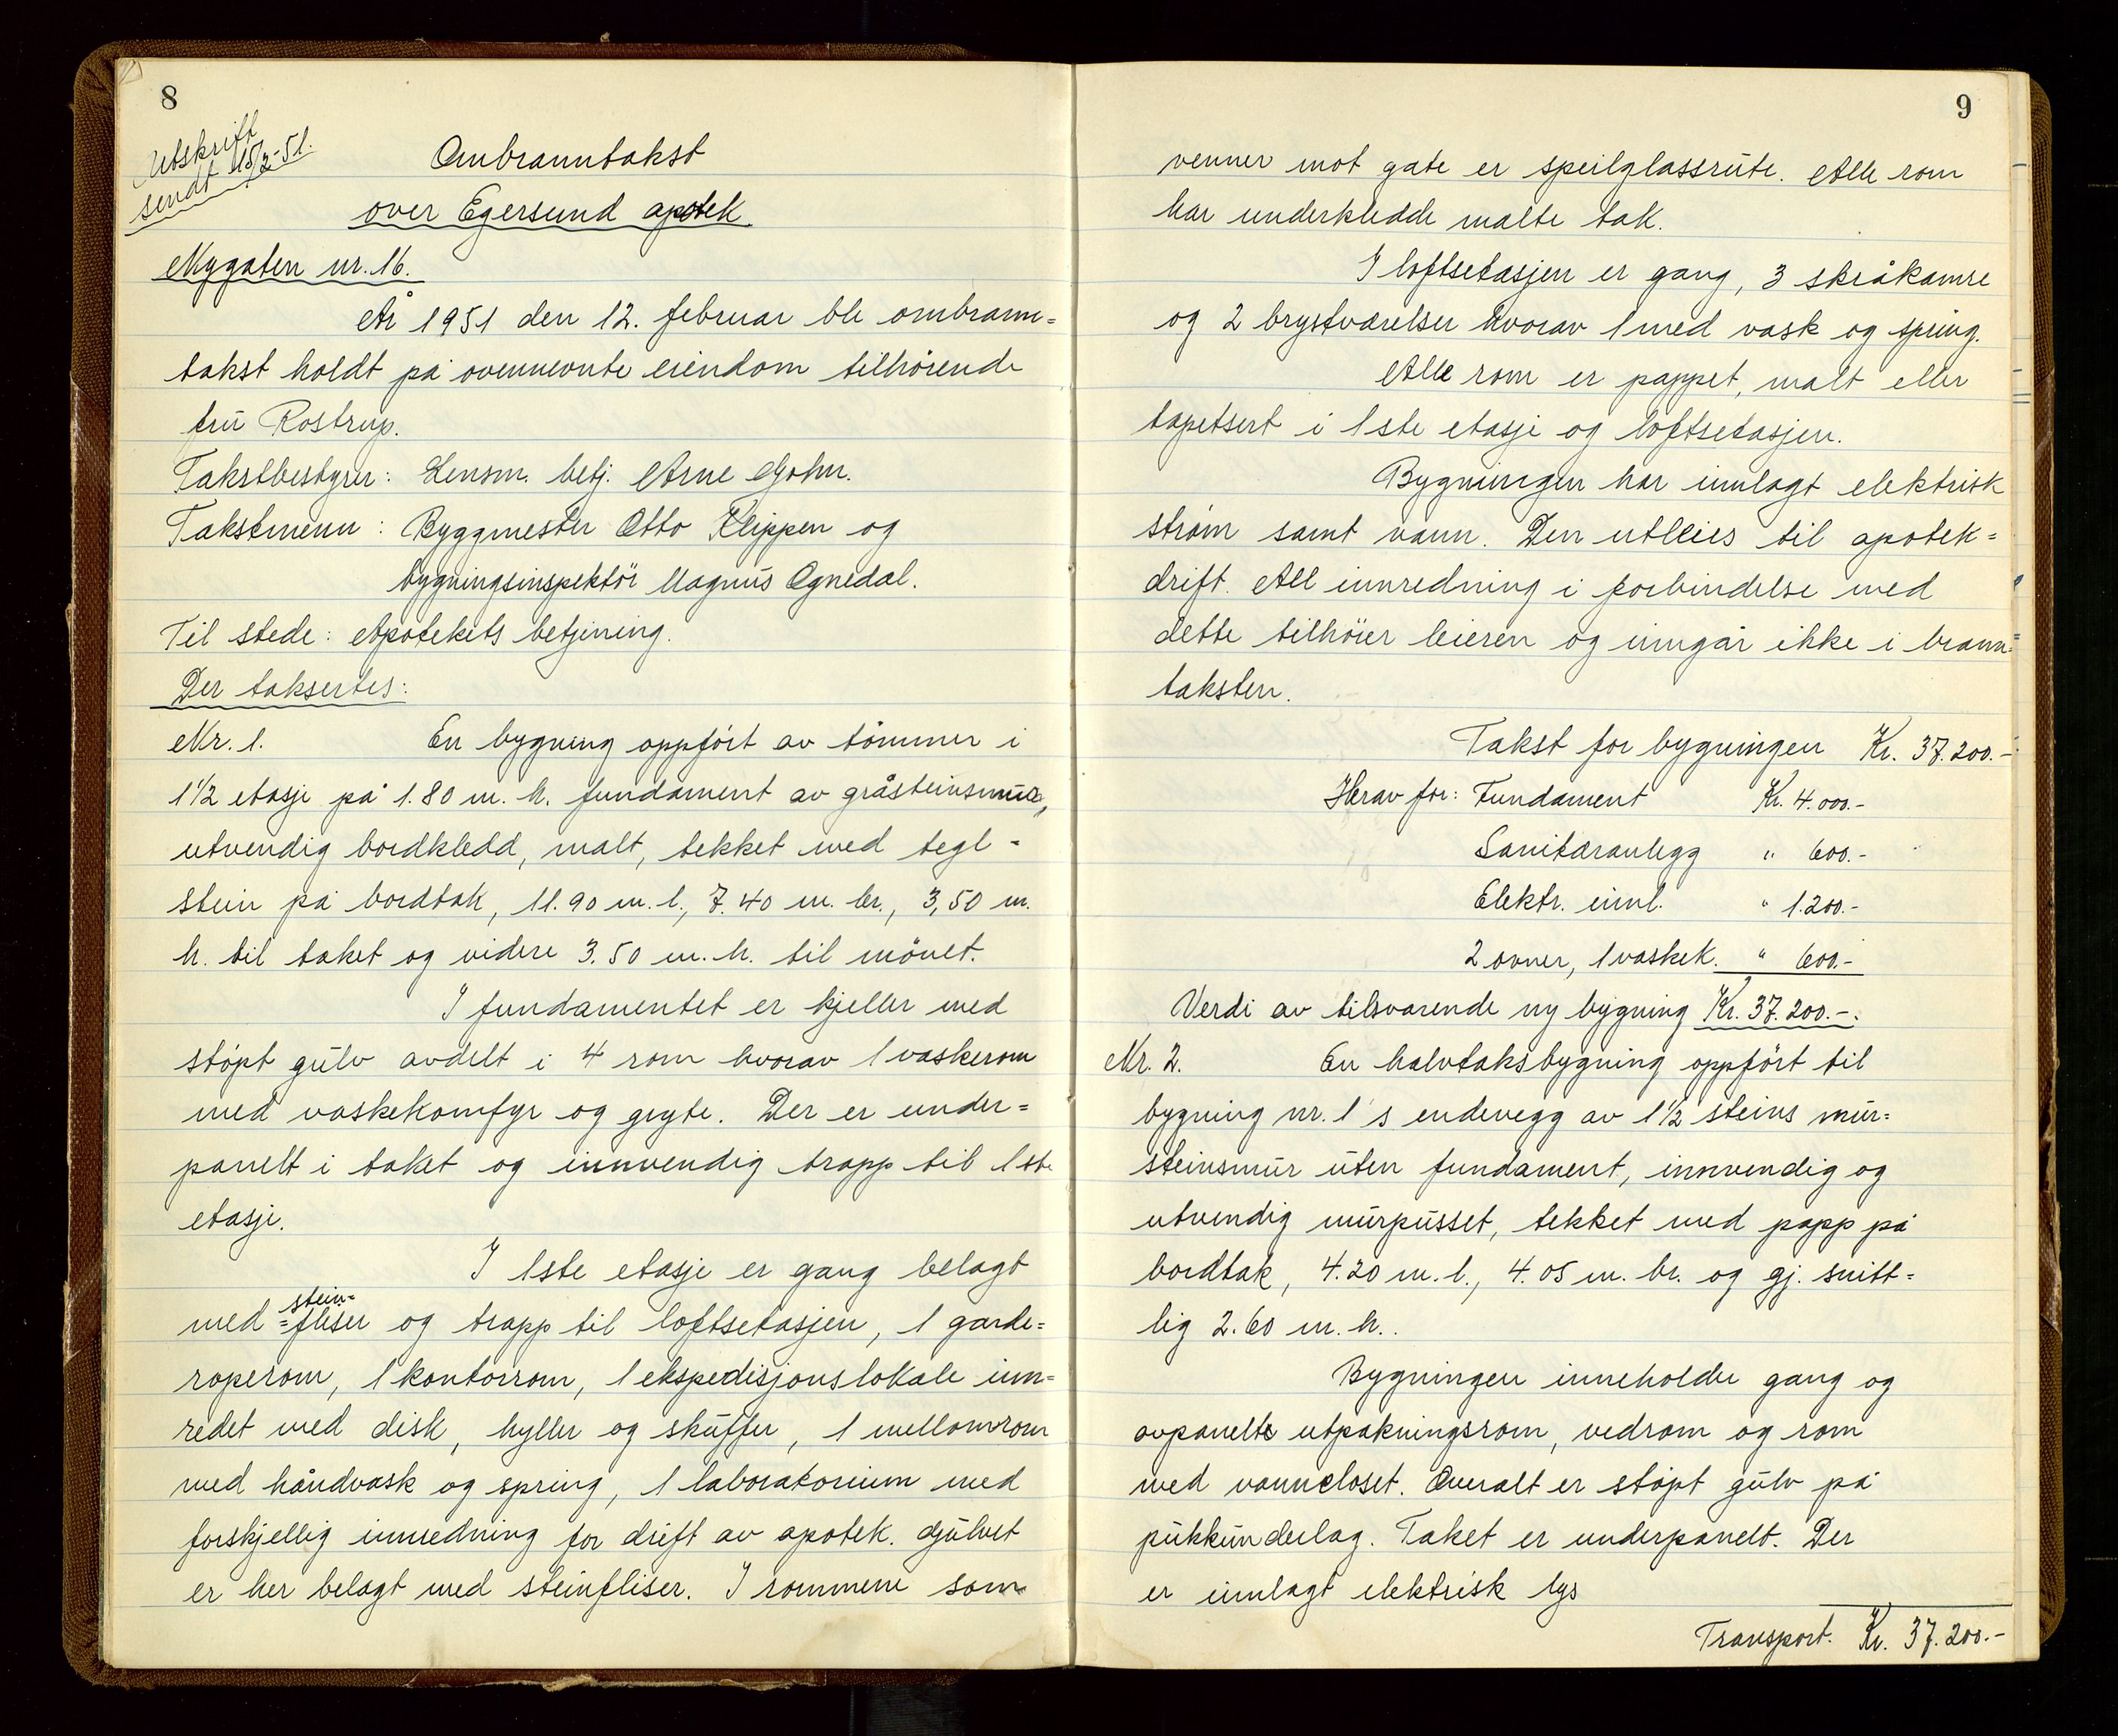 8
Utskrift
sendt 15/2-51.
Ombranntakst
over Egersund apotek.
Nygaten nr. 16.
År 1951 den 12. februar ble ombrann=
takst holdt på ovennevnte eiendom tilhørende
fru Rostrup.
Takstbestyrer: Lensm. betj. Arne Gohn.
Takstmenn: Byggmester Otto Klippen og
bygningsinspektör Magnus Ognedal.
Til stede: Apotekets betjening.
Der taksertes:
Nr. 1. En bygning oppført av tömmer i
1 1/2 etasje på 1.80 m. h. fundament av gråsteinsmur,
utvendig bordkledd, malt, tekket med tegl-
stein på bordtak, 11.90 m. l., 7.40 m. br., 3,50 m.
h. til taket og videre 3.50 m. h. til mönet.
I fundamentet er kjeller med
støpt gulv avdelt i 4 rom hvorav 1 vaskerom
med vaskekomfyr og gryte. Der er under=
panelt i taket og innvendig trapp til 1ste
etasje.
I 1ste etasje er gang belagt
med stein=
=fliser og trapp til loftsetasjen, 1 garde=
roperom, 1 kontorrom, 1 ekspedisjonslokale inn=
redet med disk, hyller og skuffer, 1 mellomrom
med håndvask og spring, 1 laboratorium med
forskjellig innredning for drift av apotek. Gulvet
er her belagt med steinfliser. I rommene som
9
venner mot gate er speilglassrute. Alle rom
har underkledde malte tak.
I loftsetasjen er gang, 3 skråkamre
og 2 brystværelser hvorav 1 med vask og spring.
Alle rom er pappet, malt eller
tapetsert i 1ste etasje og loftsetasjen.
Bygningen har innlagt elektrisk
strøm samt vann. Den utleies til apotek=
drift. All innredning i forbindelse med
dette tilhörer leieren og inngår ikke i brann=
taksten.
Takst for bygningen Kr. 37.200.-
Herav for: Fundament Kr. 4.000.-
Sanitæranlegg " 600.-
Elektr. innl. " 1.200.-
2 ovner, 1 vaskek. " 600.-
Verdi av tilsvarende ny bygning Kr. 37.200.-.
Nr. 2. En halvtaksbygning oppfört til
bygning nr. 1's endevegg av 1 1/2 steins mur=
steinsmur uten fundament, innvendig og
utvendig murpusset, tekket med papp på
bordtak, 4.20 m. l., 4.05 m. br. og gj. snitt=
lig 2.60 m. h..
Bygningen inneholder gang og
avpanelte utpakningsrom, vedrom og rom
med vanncloset. Overalt er støpt gulv på
pukkunderlag. Taket er underpanelt. Der
er innlagt elektrisk lys
Transport. Kr. 37.200.-